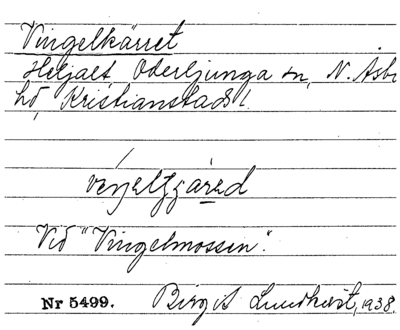 Vingelkärret
Heljalt Oderljunga sn, N. Åsbo
hd, Kristianstads l.
Vid "Vingelmossen".
Nr 5499. Birgit Lundkvist, 1938.